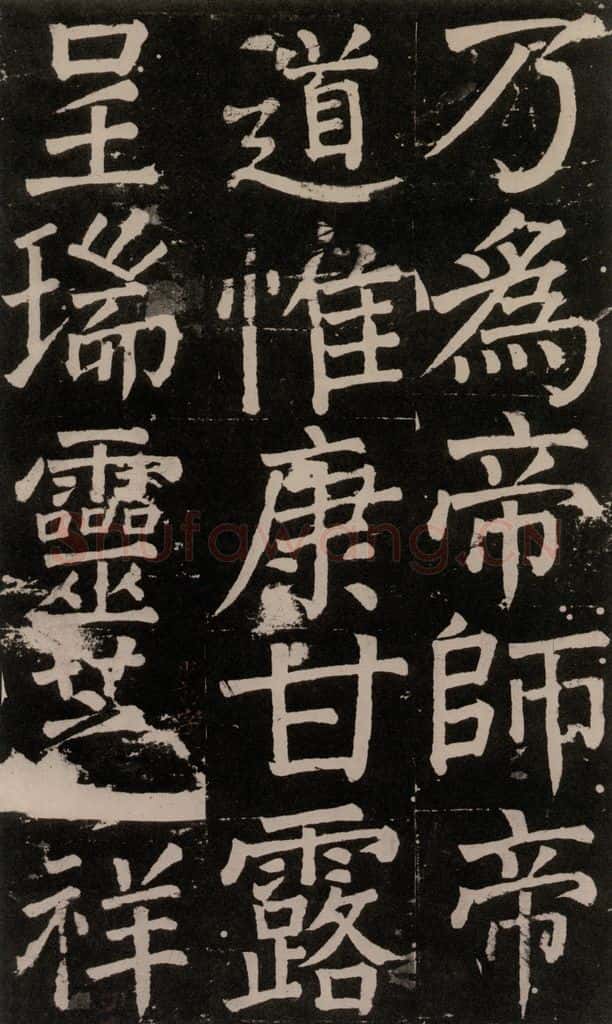 乃為帝師帝
道惟康甘露
呈瑞靈芝祥
Shufawang.CN